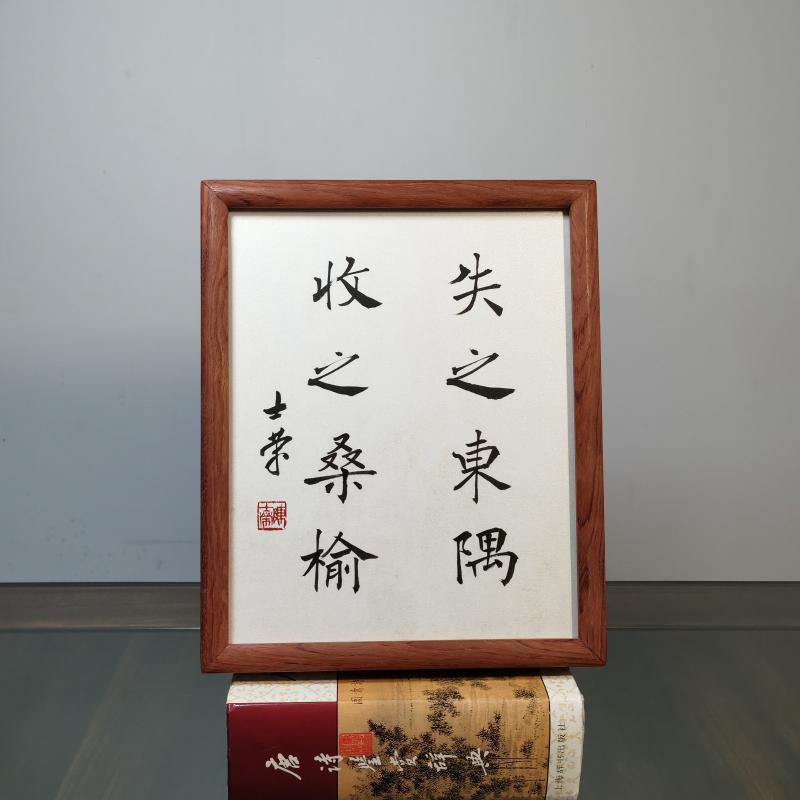 失之東隅
收之桑榆
士荣
唐诗鉴赏辞典
上海辞书出版社